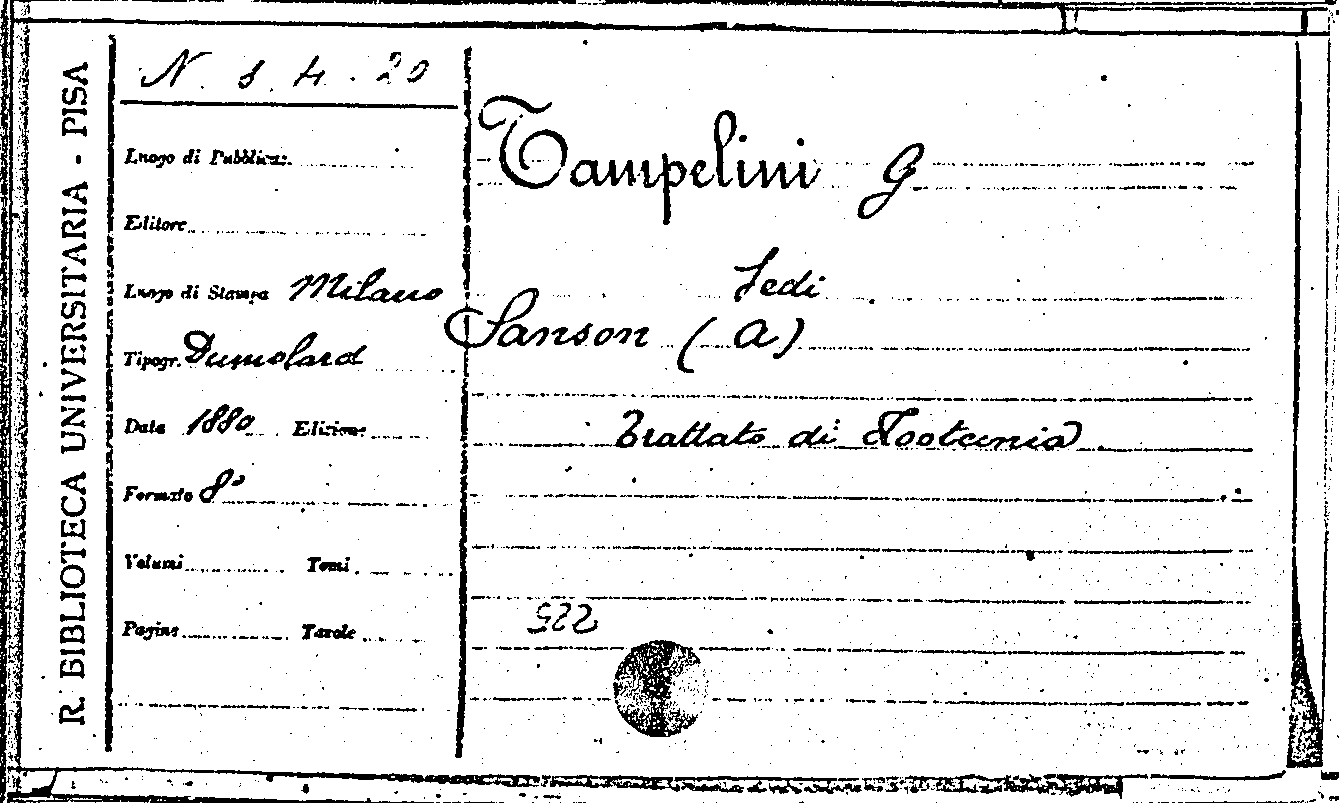 R. BIBLIOTECA UNIVERSITARIA - PISA
N. 3. 4. 20
Luogo di Pubblicaz.
Editore
Luogo di Stampa Milano
Tipogr. Dumolard
Data 1880 Edizione
Formato 8°
Volumi Tomi
Pagine Tavole
Tampelini G
Vedi
Sanson (A)
Trattato di Zootecnia
522